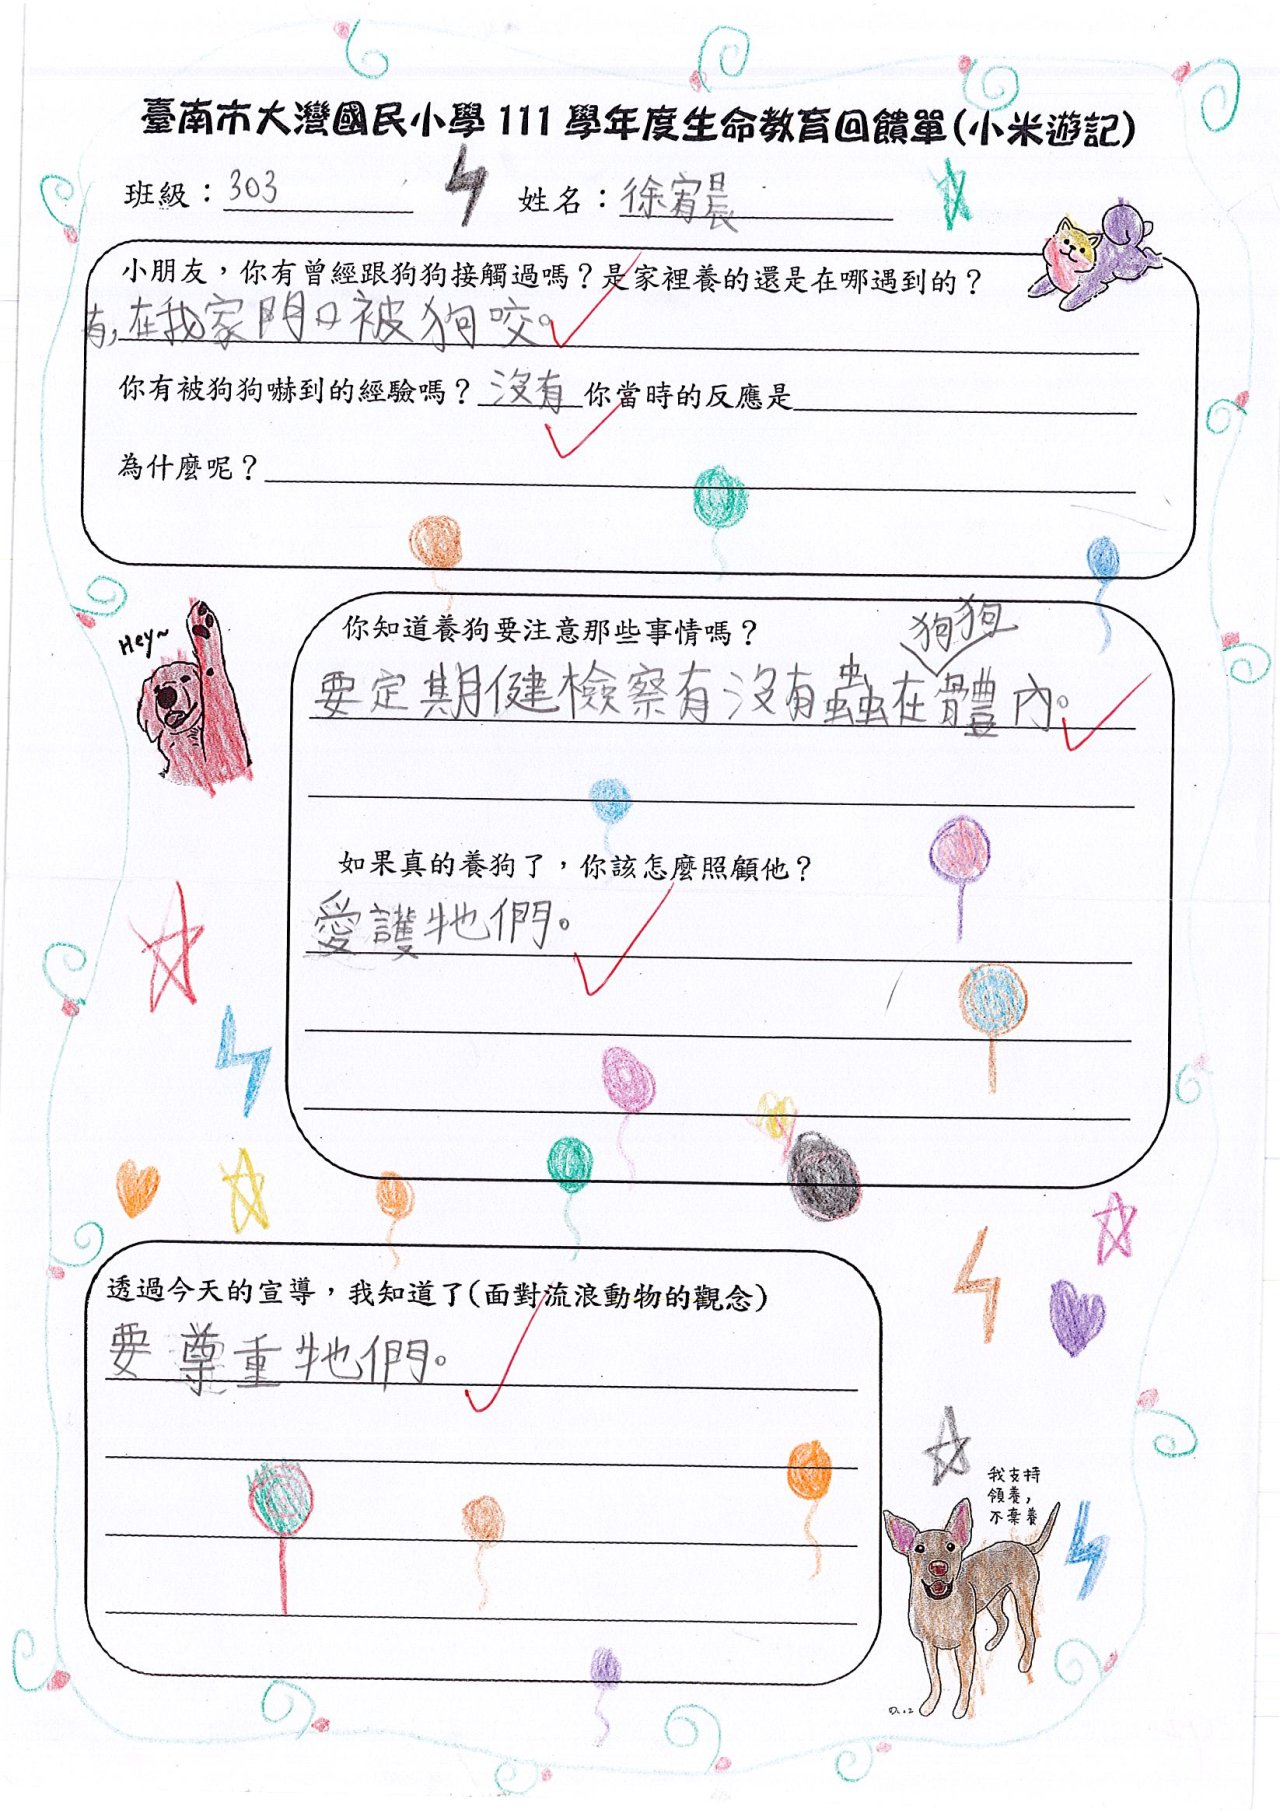 臺南市大灣國民小學 111 學年度生命教育回饋單(小米遊記)
班級：303 姓名：徐宥晨
小朋友，你有曾經跟狗狗接觸過嗎？是家裡養的還是在哪遇到的？
有,在我家門口被狗咬。
你有被狗狗嚇到的經驗嗎？沒有 你當時的反應是
為什麼呢？
Hey~
你知道養狗要注意那些事情嗎？
狗狗
要定期健檢察有沒有蟲在體內。
如果真的養狗了，你該怎麼照顧他？
愛護牠們。
透過今天的宣導，我知道了(面對流浪動物的觀念)
要尊重牠們。
我支持
領養，
不棄養